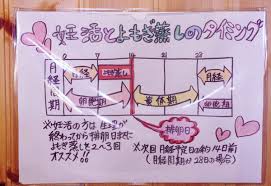 妊活とよもぎ蒸しのタイミング
7 14 21 28
月経周期
月経 よもぎ蒸し 月経
卵胞期 黄体期 卵胞期
排卵日
※妊活の方は生理が
終わってから排卵日までに
よもぎ蒸し2〜3回
オススメ!!
※次回月経予定日の約14日前
(月経周期が28日の場合)